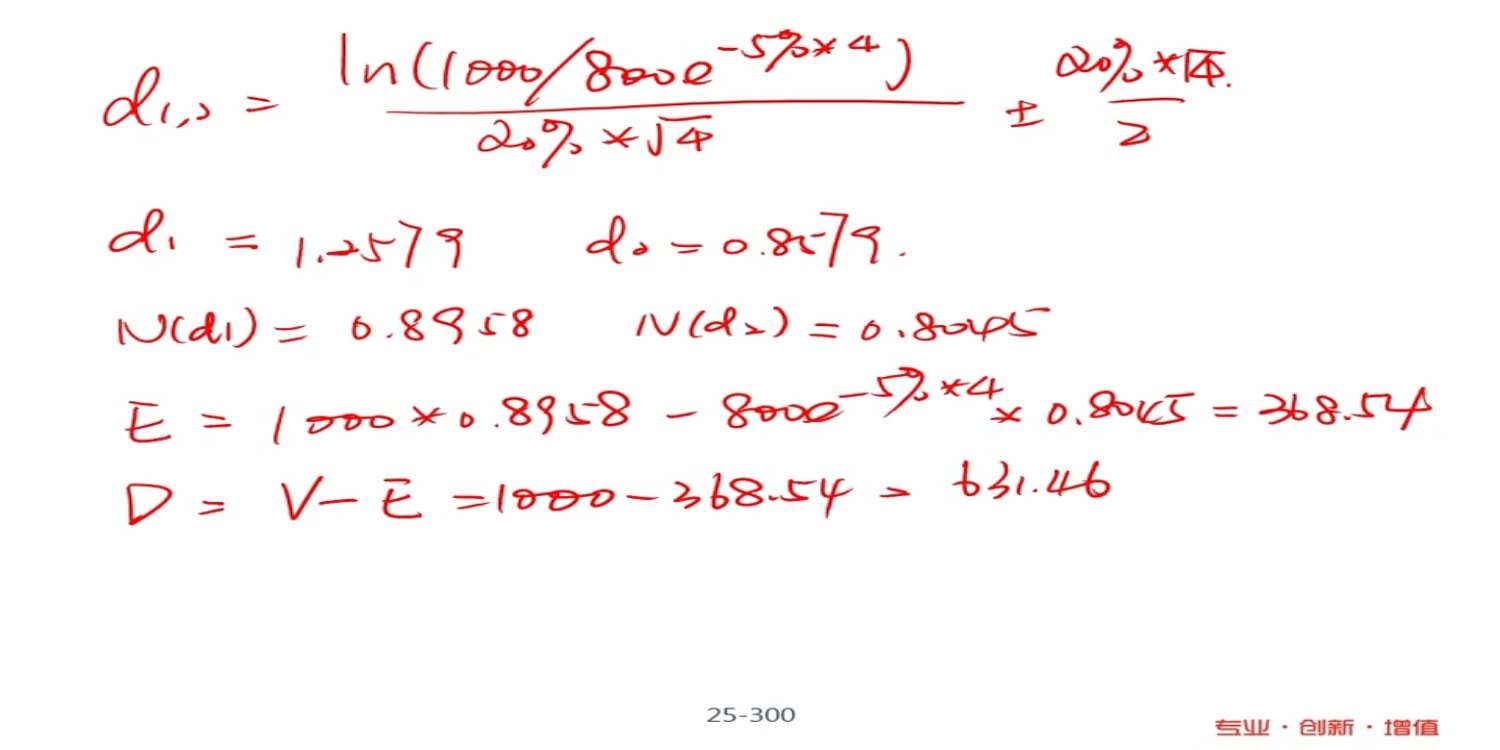 d₁,₂ = ln(1000/800e^(-5%*4)) / (20%*√4) ± (20%*√4)/2
d₁ = 1.2579 d₂ = 0.8579.
N(d1) = 0.8958 N(d₂) = 0.8045
E = 1000*0.8958 - 800e^(-5%*4) * 0.8045 = 368.54
D = V-E = 1000-368.54 = 631.46
25-300
专业·创新·增值